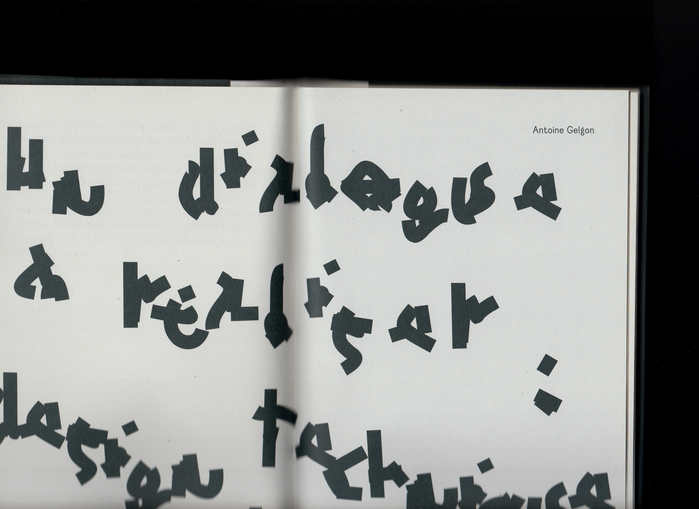 Antoine Gelgon
Un dialogue
à réaliser :
design technique